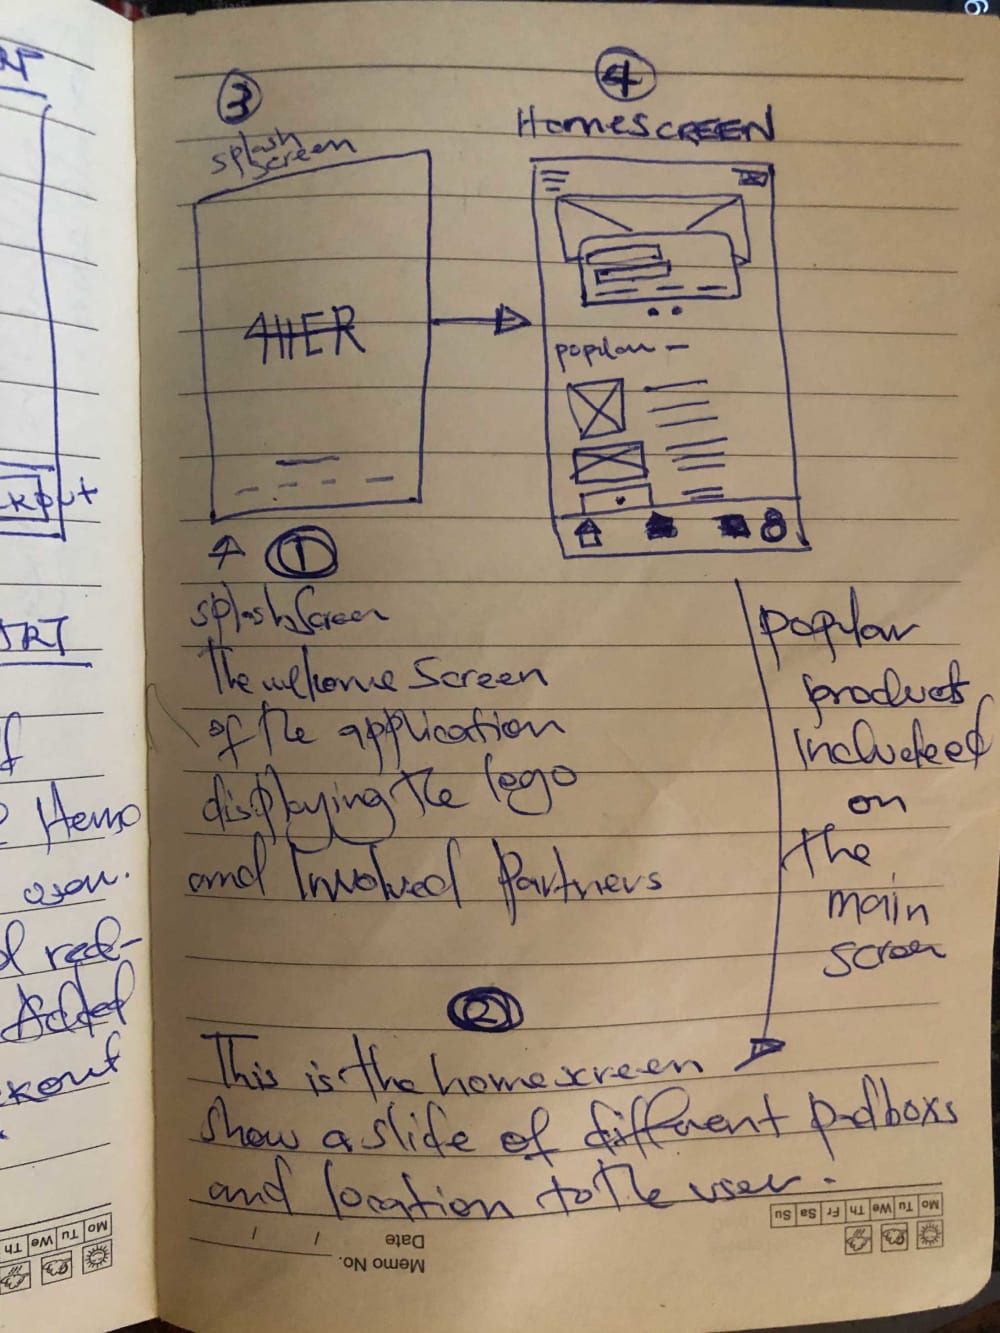 RT
3
splash
screen
4
HomeSCREEN
4HER
popular
kout
1
splashScreen
The welcome Screen
of the application
displaying the logo
and Involved Partners
popular
product
Included
on
the
main
screen
2
This is the homescreen
show a slide of different podboxs
and location to the user.
ART
f
Items
d red-
Added
kout
Memo No.
Date
/ /
Mo Tu We Th Fr Sa Su
Mo Tu We Th